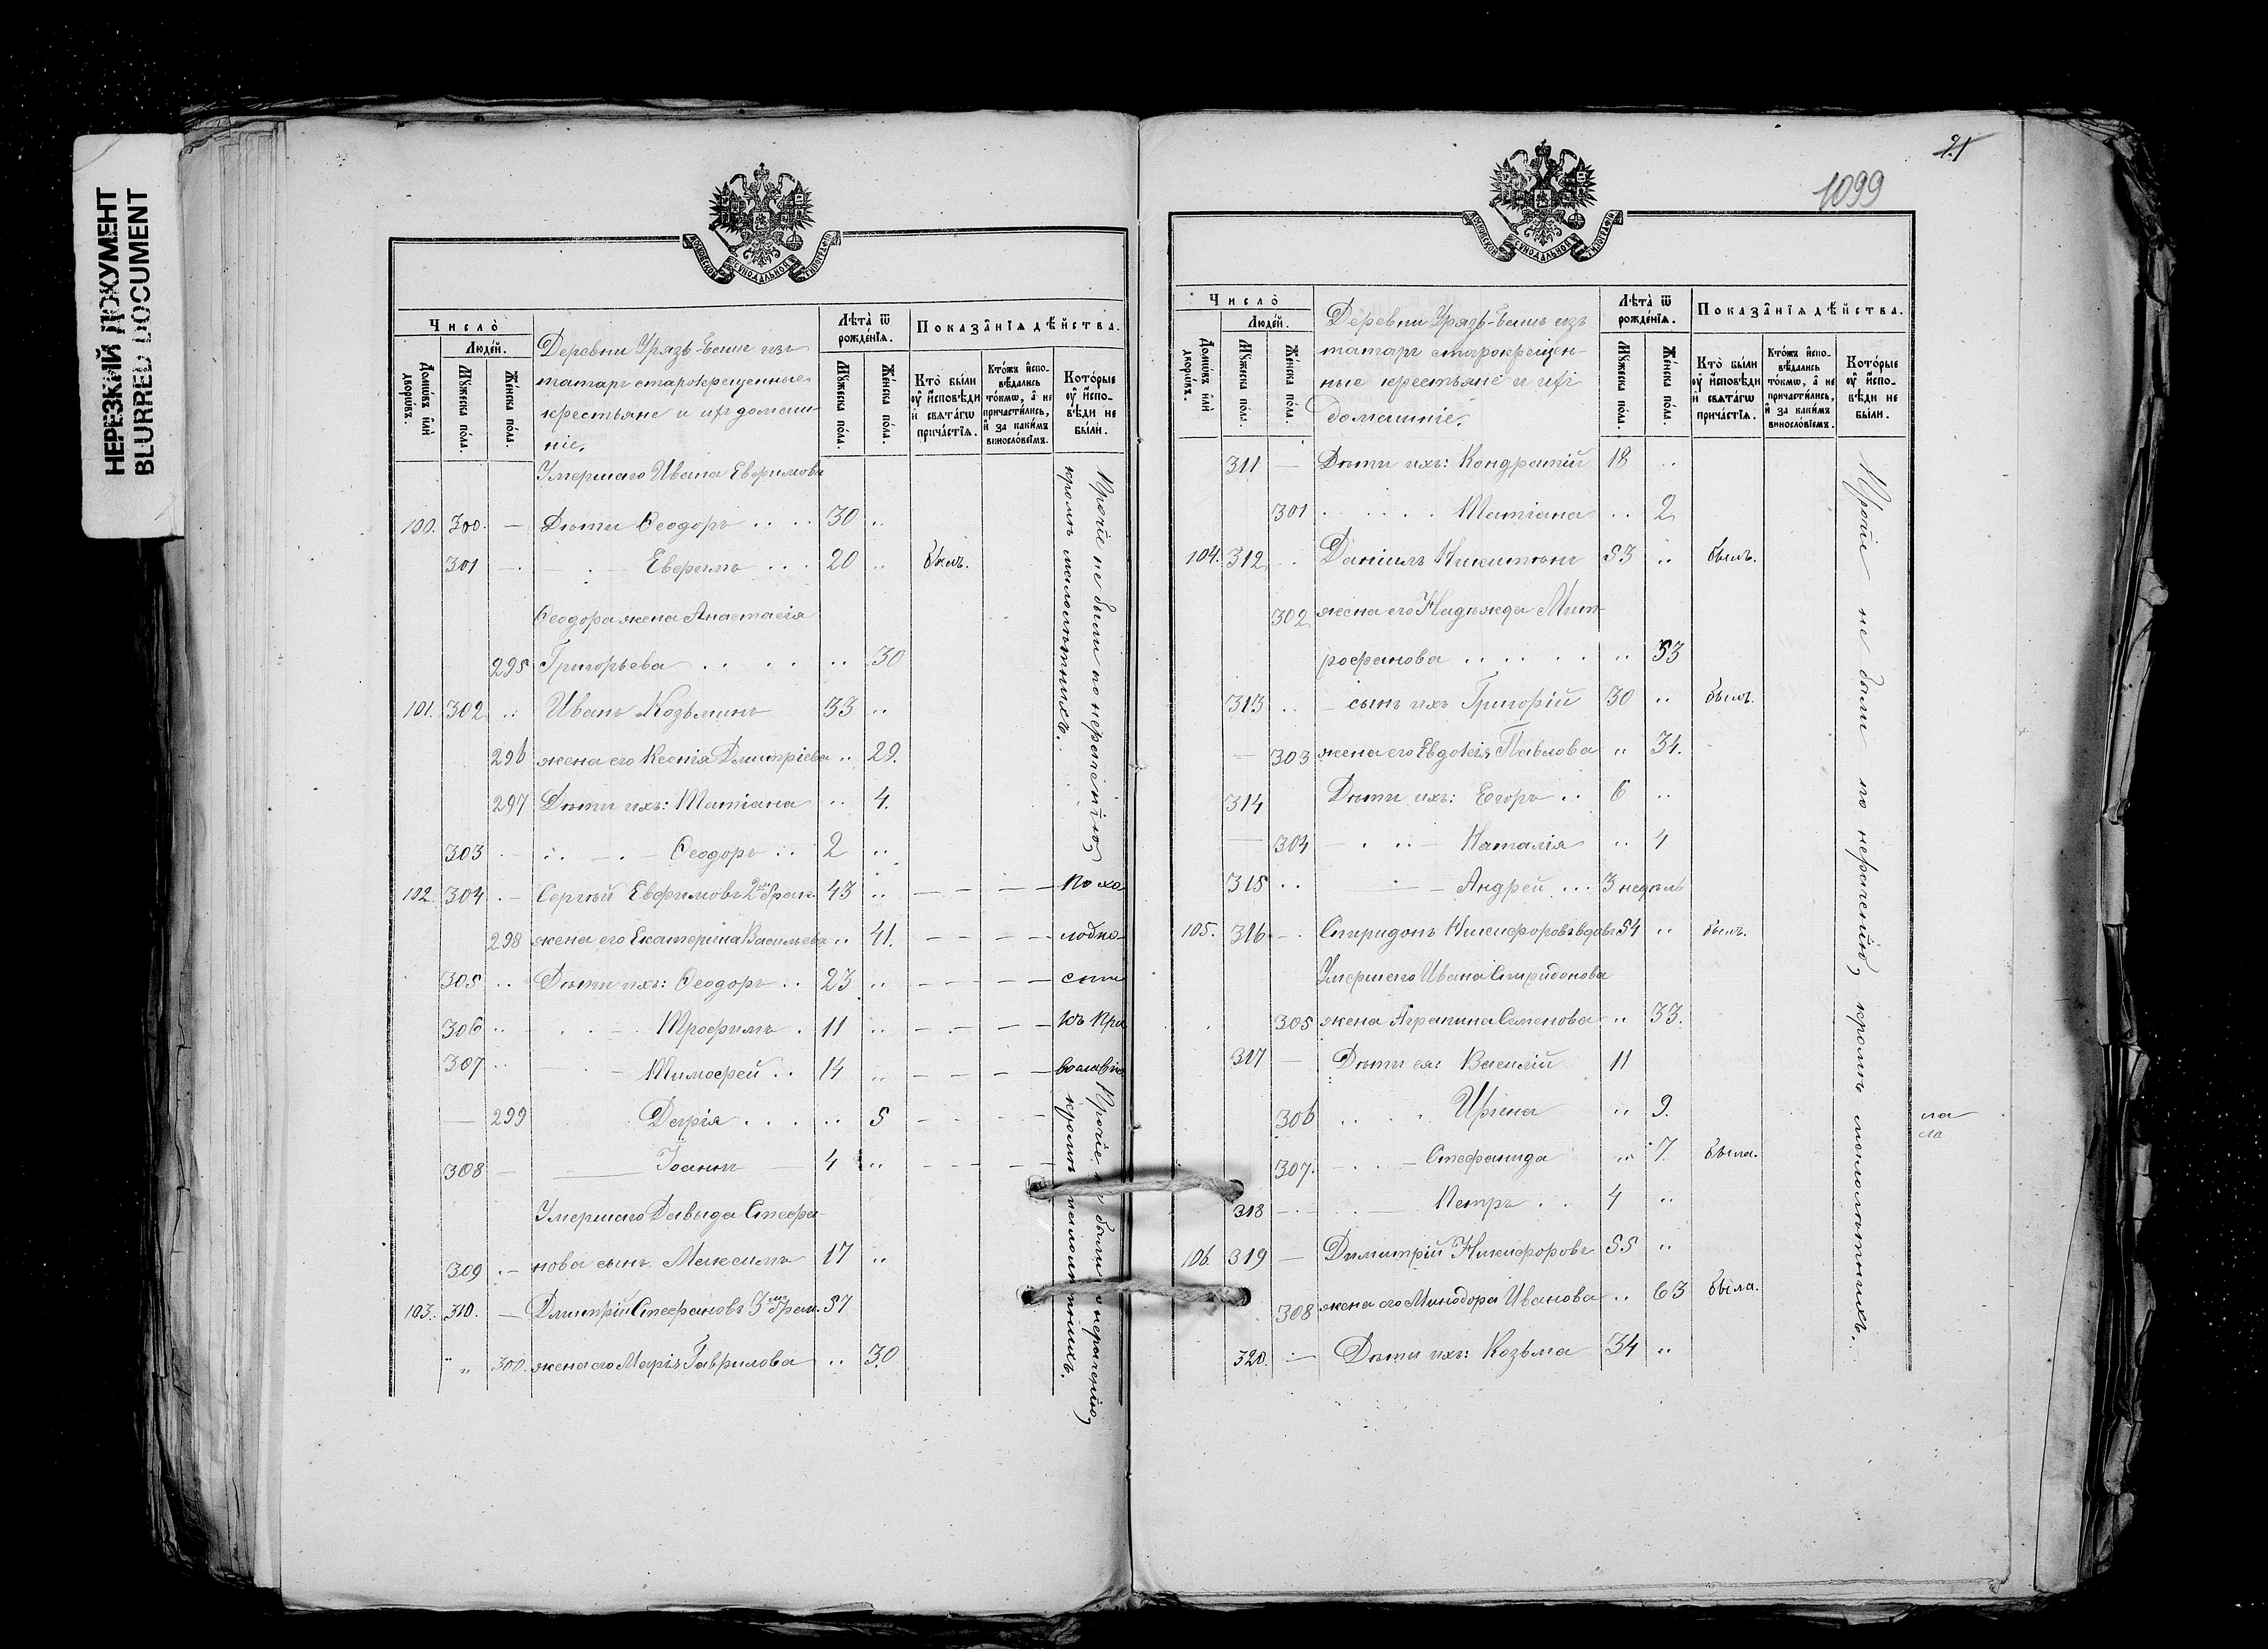 НЕРЕЗКИЙ ДОКУМЕНТ
BLURRED DOCUMENT
МОСКОВСКОЙ СѴНОДАЛЬНОЙ ТИПОГРАФІИ
Число̀
Людей.
Домѡвъ илѝ дворѡвъ.
Мꙋжеска пола.
Женска пола.
Деревни Урязъ-Баши изъ
татаръ старокрещенные
крестьяне и ихъ домаш-
ніе.
Лѣта̀ ѿ рожденїѧ.
Мꙋжеска пола.
Женска пола.
Показанїѧ дѣйства.
Кто̀ были ᲂу҆ исповѣди и свѧтагѡ причастїѧ.
Ктожъ исповѣдались токмѡ, а не причастились, и за какимъ винословїемъ.
Которые ᲂу҆ исповѣди не были.
Умершаго Ивана Евфимова
100. 300. — Дѣти Ѳеодоръ . . . . 30 ..
301 — Евфимъ . . . 20 .. былъ.
Ѳеодора жена Анастасія
295 Григорьева . . . . .. 30
101. 302 .. Иванъ Козьминъ 33 ..
296 жена его Ксенія Димитріева .. 29.
297 Дѣти ихъ: Татіана .. 4.
303 — Ѳеодоръ .. 2 ..
102. 304 . — Сергѣй Евфимовъ 2мъ брак. 43 .. — — — — По хо
298 жена его Екатерина Васильева .. 41. — — — — лодно
305 .. Дѣти ихъ: Ѳеодоръ .. 23 .. — — — — сти
306 .. Трофимъ . 11 .. — — — — къ Пра
307 .. Тимофей .. 14 .. — — — — вославію
— 299 Дарія . . . .. 5 — — — —
308 — Іоаннъ 4 .. — — — —
Умершаго Давыда Стефа-
309 . — нова сынъ Максимъ 17 ..
103. 310. — Димитрій Стефановъ 3мъ брак. 57
„ 300. жена его Марія Гаврилова .. 30
Прочіе не были по нераченію,
кромѣ малолѣтнихъ.
Прочіе не были по нераченію,
кромѣ малолѣтнихъ.
21
1099
МОСКОВСКОЙ СѴНОДАЛЬНОЙ ТИПОГРАФІИ
Число̀
Людей.
Домѡвъ илѝ дворѡвъ.
Мꙋжеска пола.
Женска пола.
Деревни Урязъ-Баши изъ
татаръ старокрещен-
ные крестьяне и ихъ
домашніе.
Лѣта̀ ѿ рожденїѧ.
Мꙋжеска пола.
Женска пола.
Показанїѧ дѣйства.
Кто̀ были ᲂу҆ исповѣди и свѧтагѡ причастїѧ.
Ктожъ исповѣдались токмѡ, а не причастились, и за какимъ винословїемъ.
Которые ᲂу҆ исповѣди не были.
311 — Дѣти ихъ: Кондратій 18 ..
301 . . . . . Татіана .. 2
104. 312 .. Даніилъ Никитинъ 53 .. былъ.
302 жена его Надежда Мит-
рофанова . . . . . .. 53
313 .. — сынъ ихъ Григорій 30 .. былъ.
— 303 жена его Евдокія Павлова „ 31.
314 Дѣти ихъ: Егоръ .. 6 ..
— 304 — Наталія .. 4
315 .. — Андрей ... 3 недѣль
105. 316 — . Спиридонъ Никифоровъ вдовъ 54 .. былъ.
Умершаго Ивана Спиридонова
305 жена Агрипина Семенова „ 33.
317 — Дѣти ея: Василій 11
306 . . . Ирина „ 9.
307. — Стефанида „ 7. была.
318 — Петръ . . 4 ..
106. 319 — Димитрій Никифоровъ 55 ..
308 жена его Минодора Иванова .. 63 была.
320. — Дѣти ихъ: Козьма 34 ..
Прочіе не были по нераченію, кромѣ малолѣтнихъ.
ла
ла